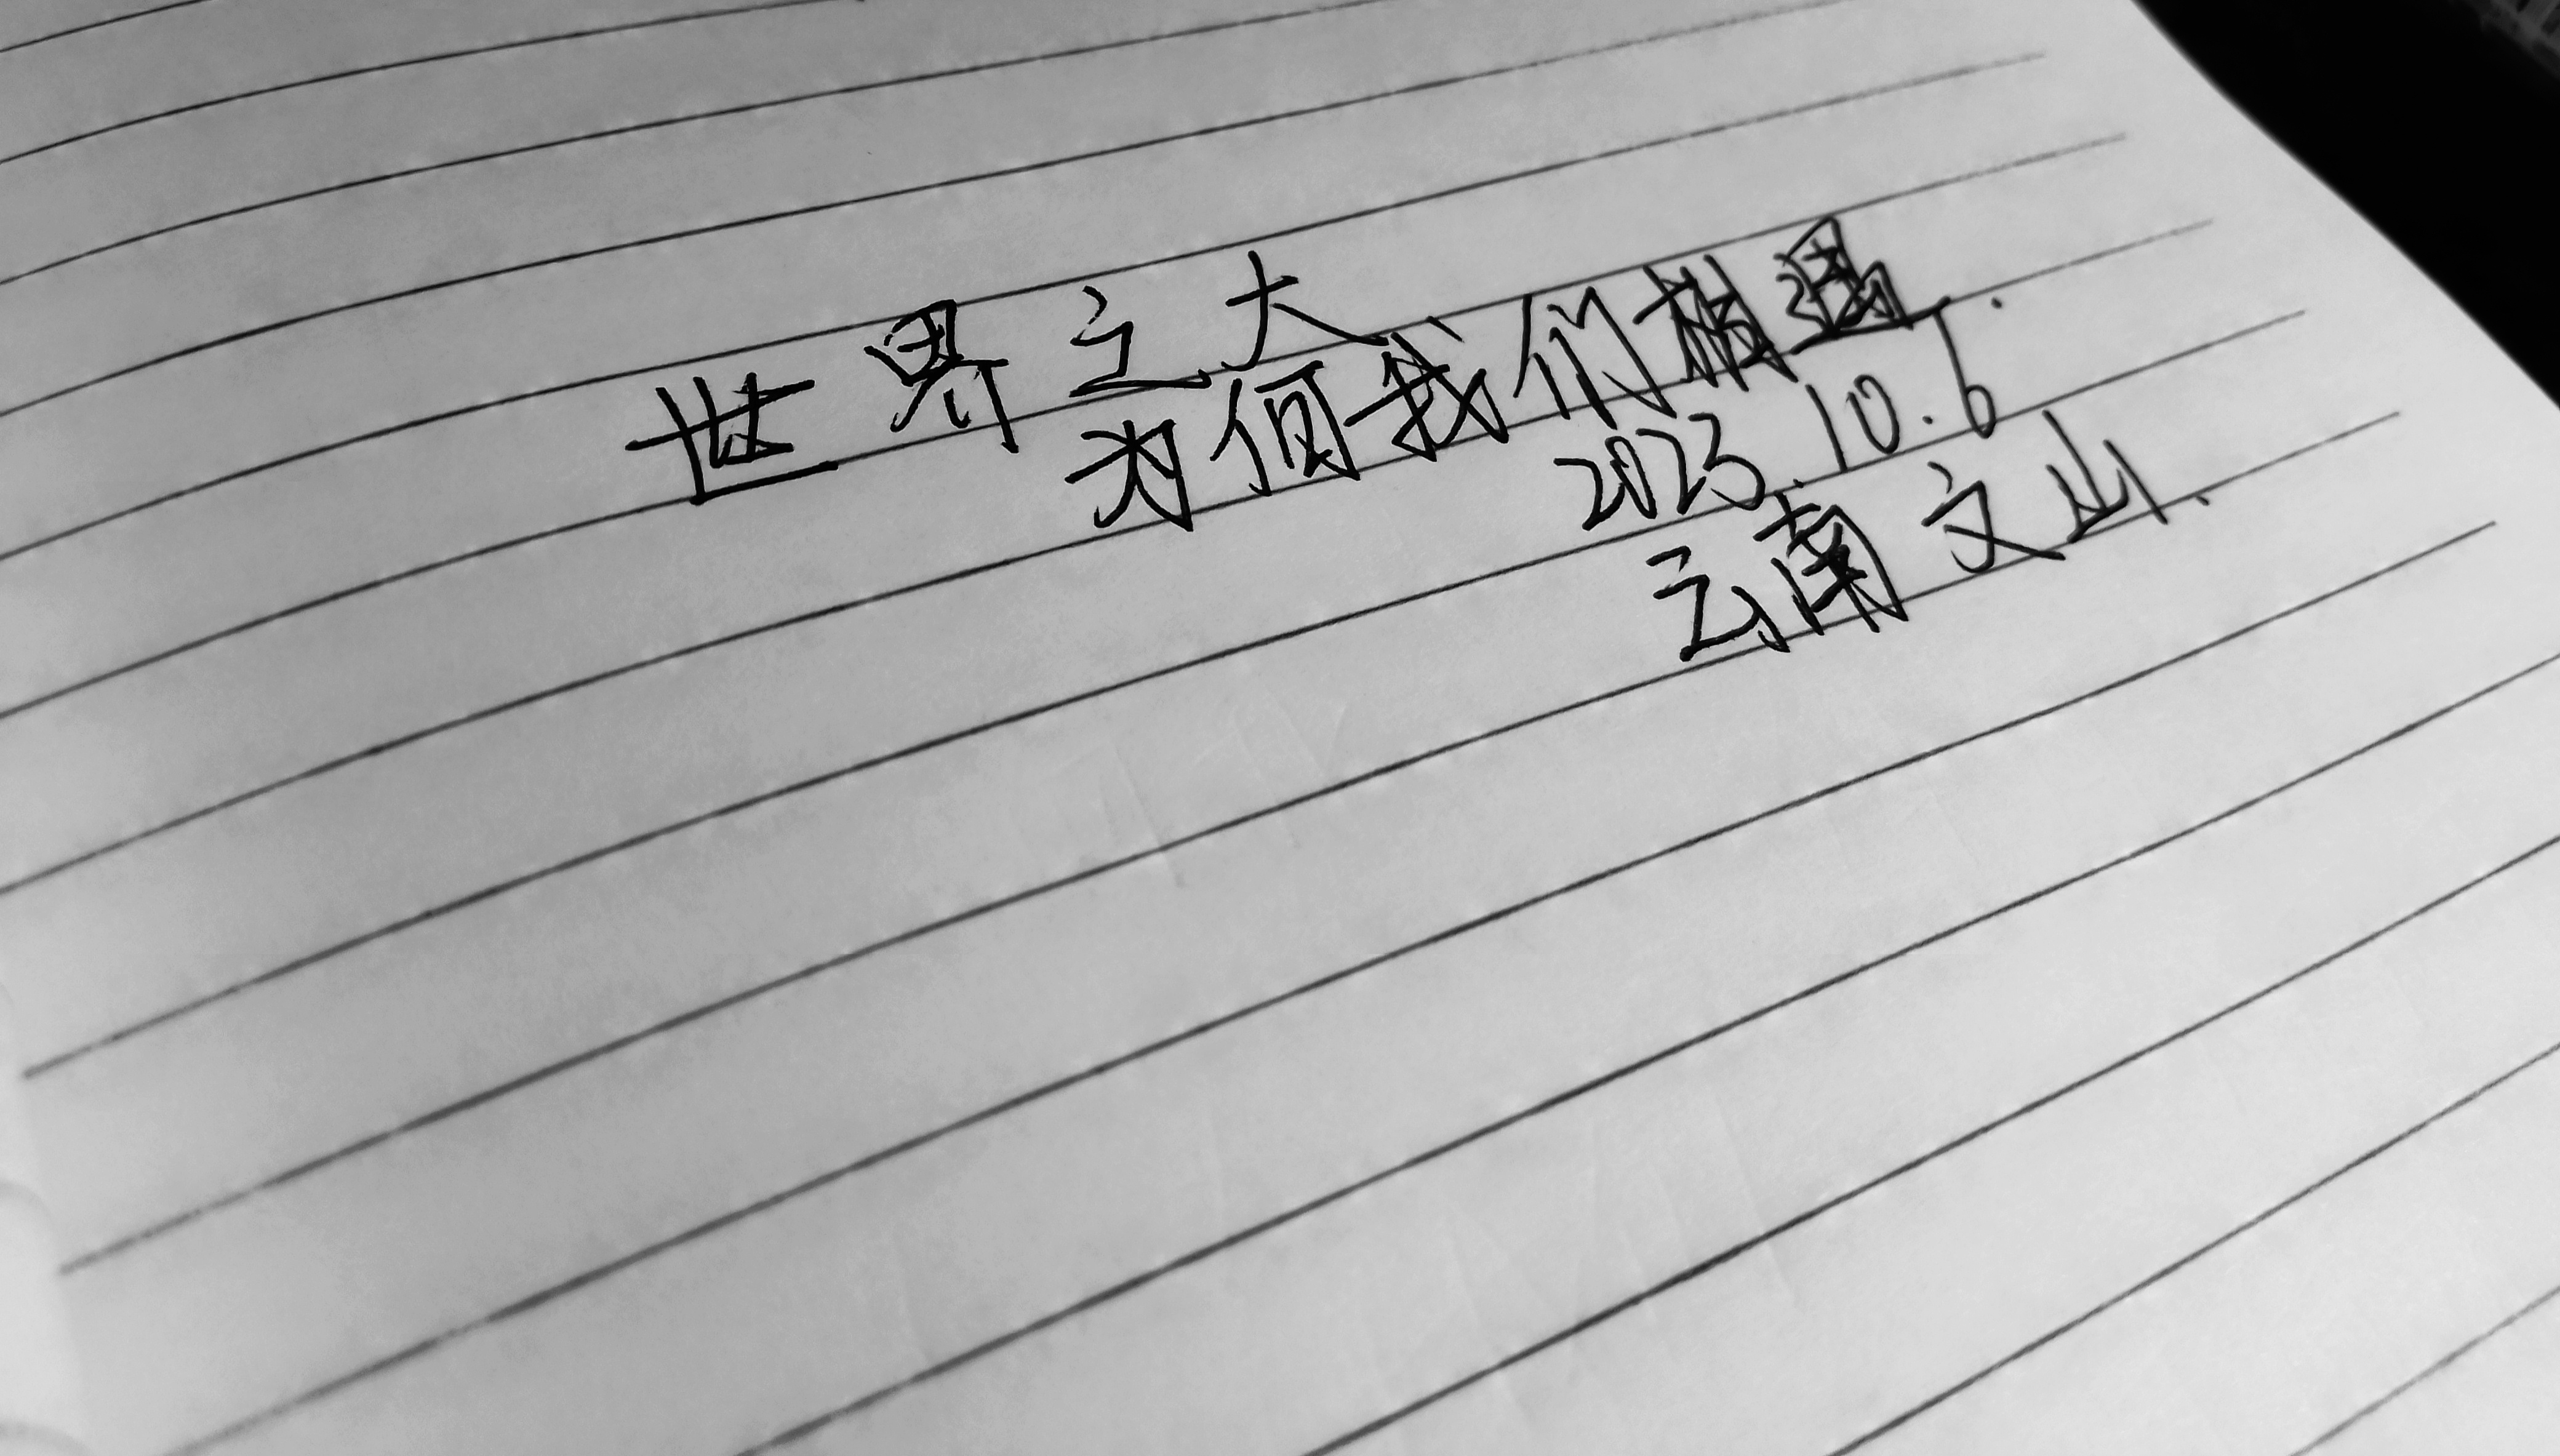 世界之大
为何我们相遇.
2023.10.6
云南文山.